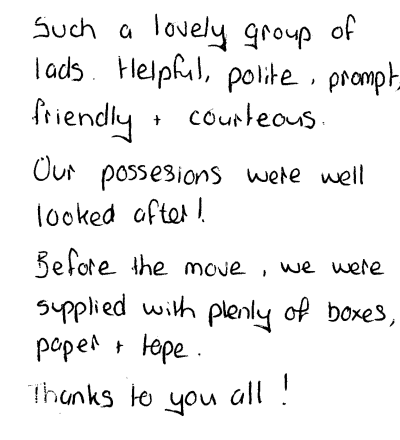 Such a lovely group of
lads. Helpful, polite, prompt,
friendly + courteous.
Our possesions were well
looked after!
Before the move, we were
supplied with plenly of boxes,
paper + tape.
Thanks to you all!